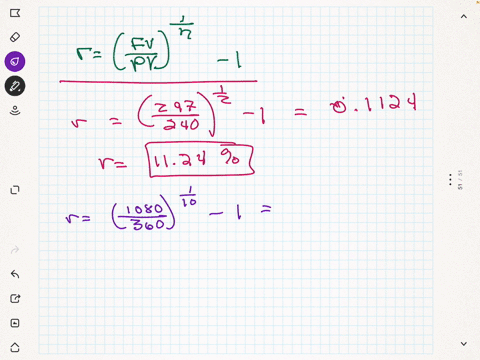 r = (FV/PV)^(1/n) - 1
r = (297/240)^(1/2) - 1 = 0.1124
r = 11.24 %
r = (1080/360)^(1/10) - 1 =